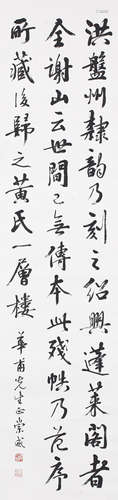 洪盤州隸韻乃刻之紹興蓬萊閣者
全謝山云世間已無傳本此殘帙乃范序
所藏後歸之黃氏一層樓
華甫先生正 崇威